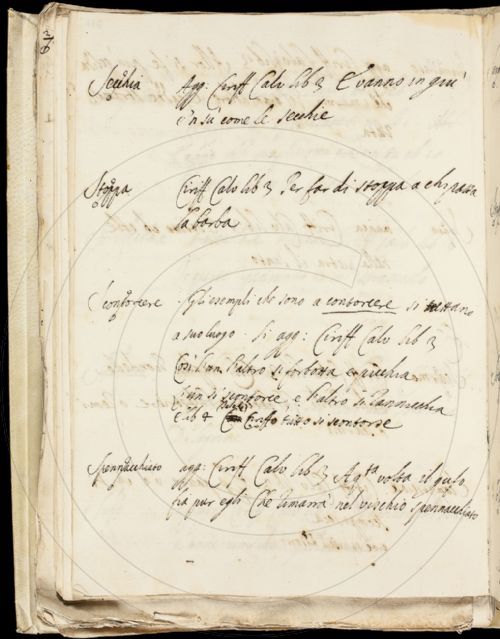 Secchia Agg: Ciriff Calv lib 3 E vanno in giu'
e 'n su' come le secchie
Stoppa Ciriff Calv lib 3 Per far di stoppa a chi passa
la barba
Scontorcere . Gli esempli che sono a contorcere si mettano
a suo luogo . Si agg: Ciriff Calv lib 3
Così l'un l'altro si forbotta e nicchia
L'un si scontorce e l'altro si rannicchia
E lib 4 Ciriffo tutto si scontorse
Spennacchiato agg: Ciriff Calv lib 3 A q.ta volta il gufo
fia pur egli Che rimarrà nel vischio spennacchiato